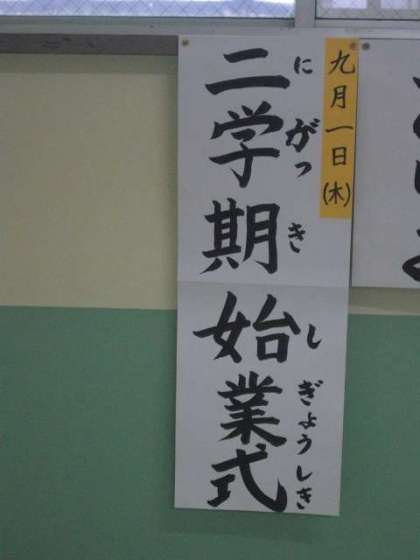 九月一日(木)
にがっきしぎょうしき
二学期始業式